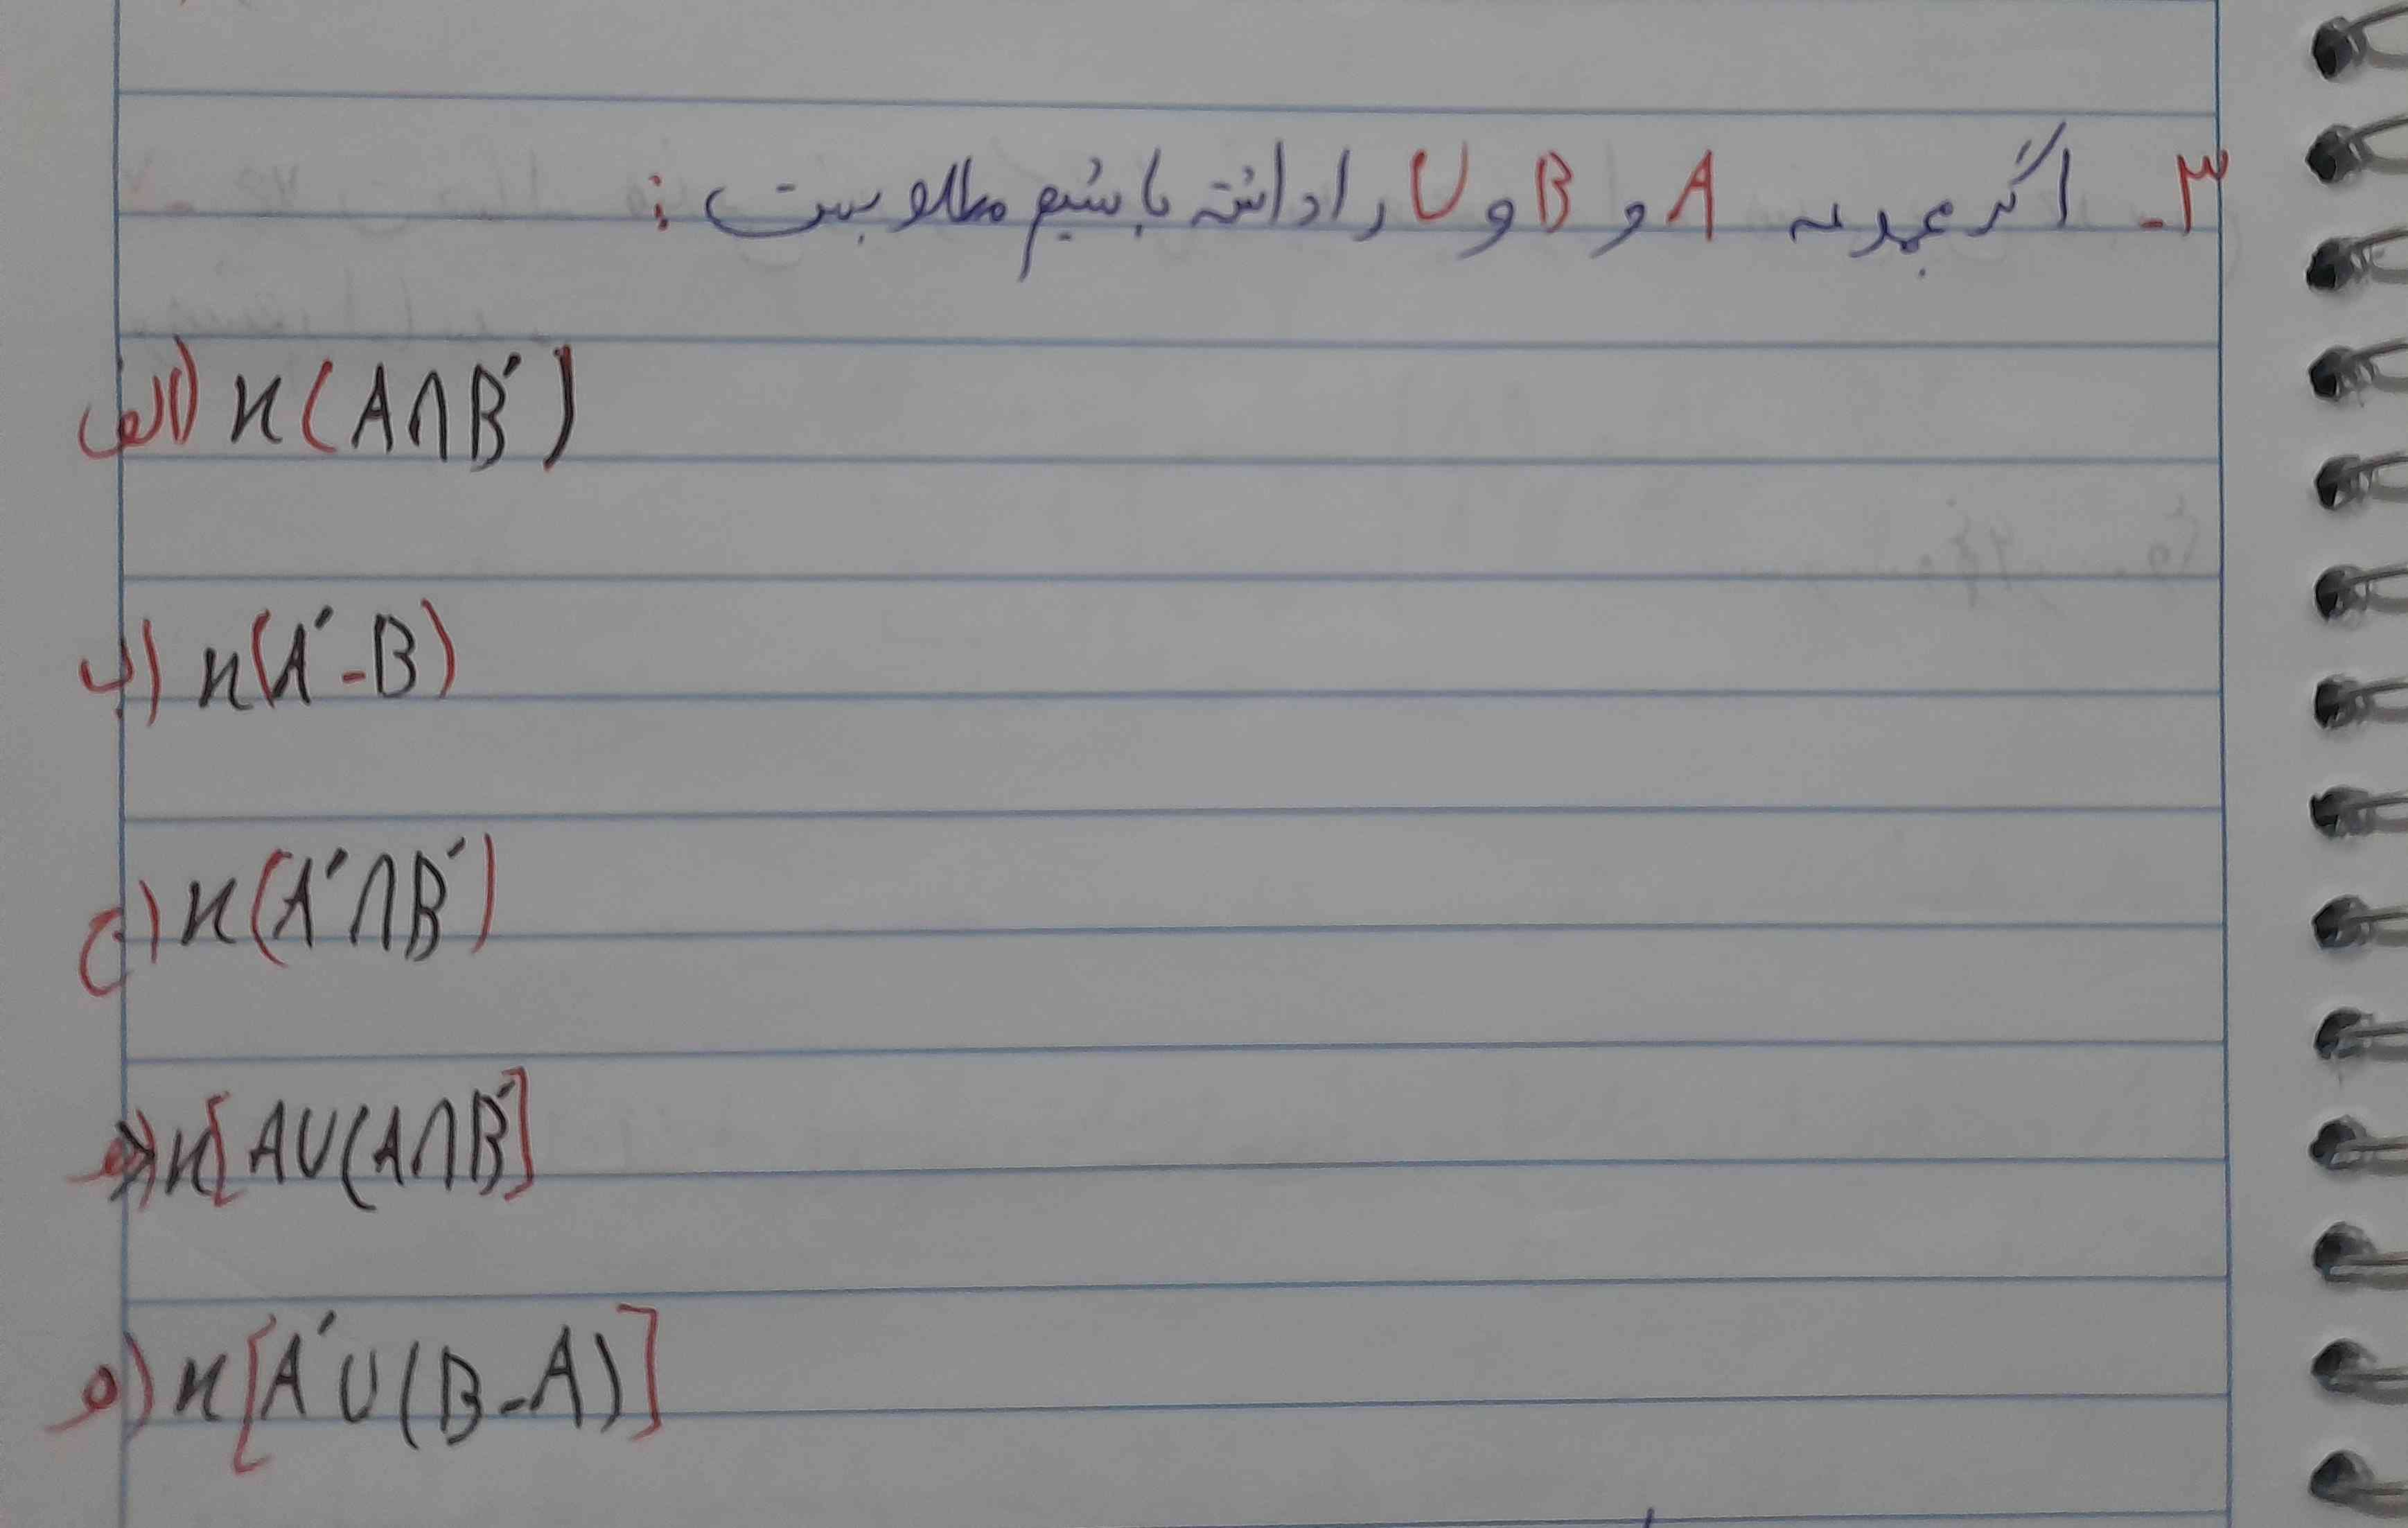 ۳- اگر مجموعه A و B و U را داشته باشیم مطلوبست :
الف) n(A∩B′)
ب) n(A′-B)
ج) n(A′∩B′)
د) n[A∪(A∩B′]
و) n[A′∪(B-A)]